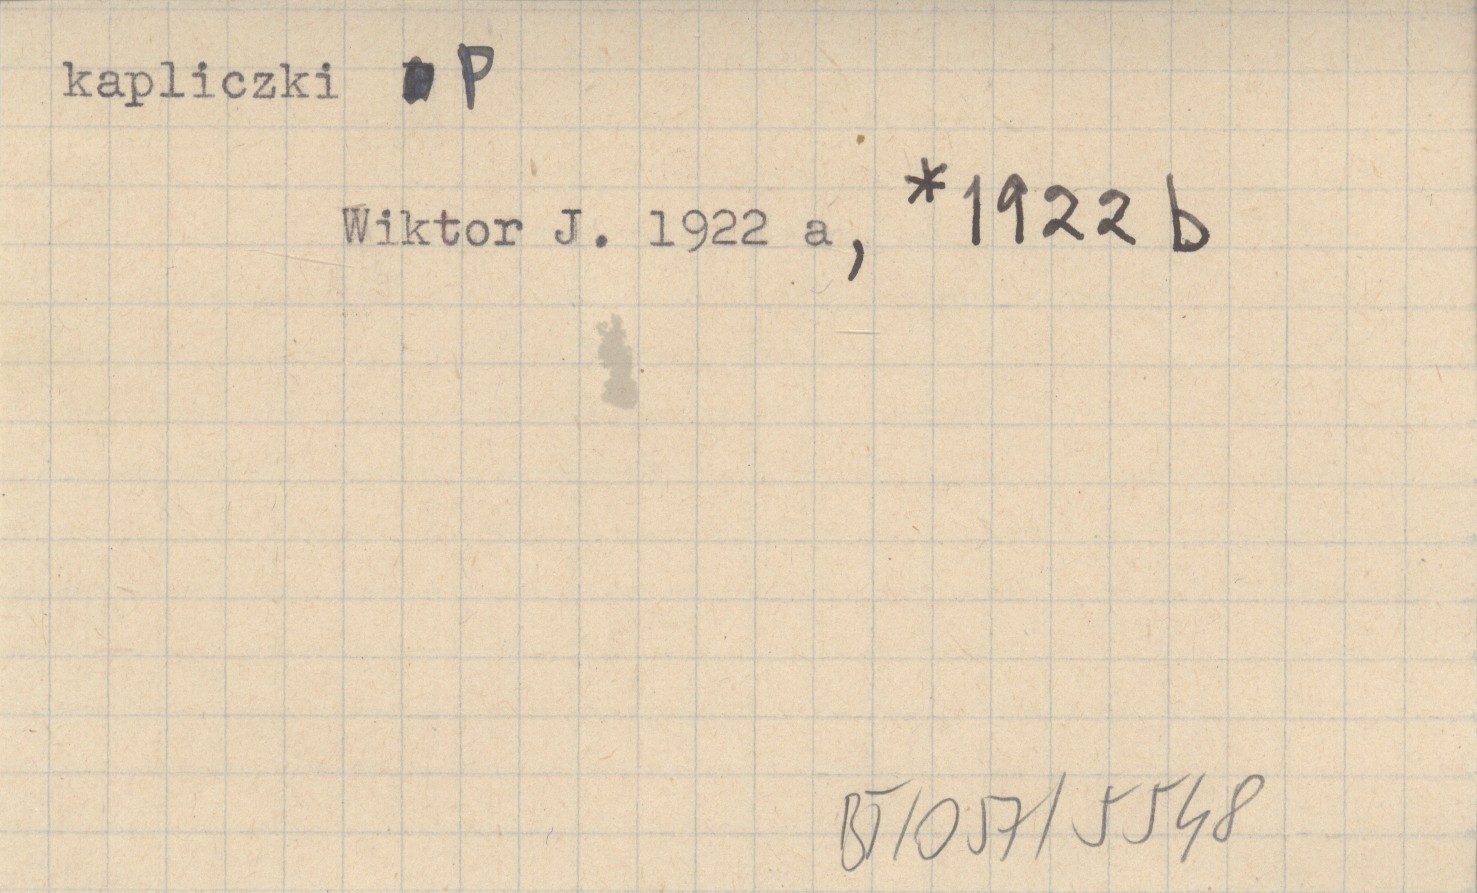 kapliczki P
Wiktor J. 1922 a, *1922 b
BT/057/5548